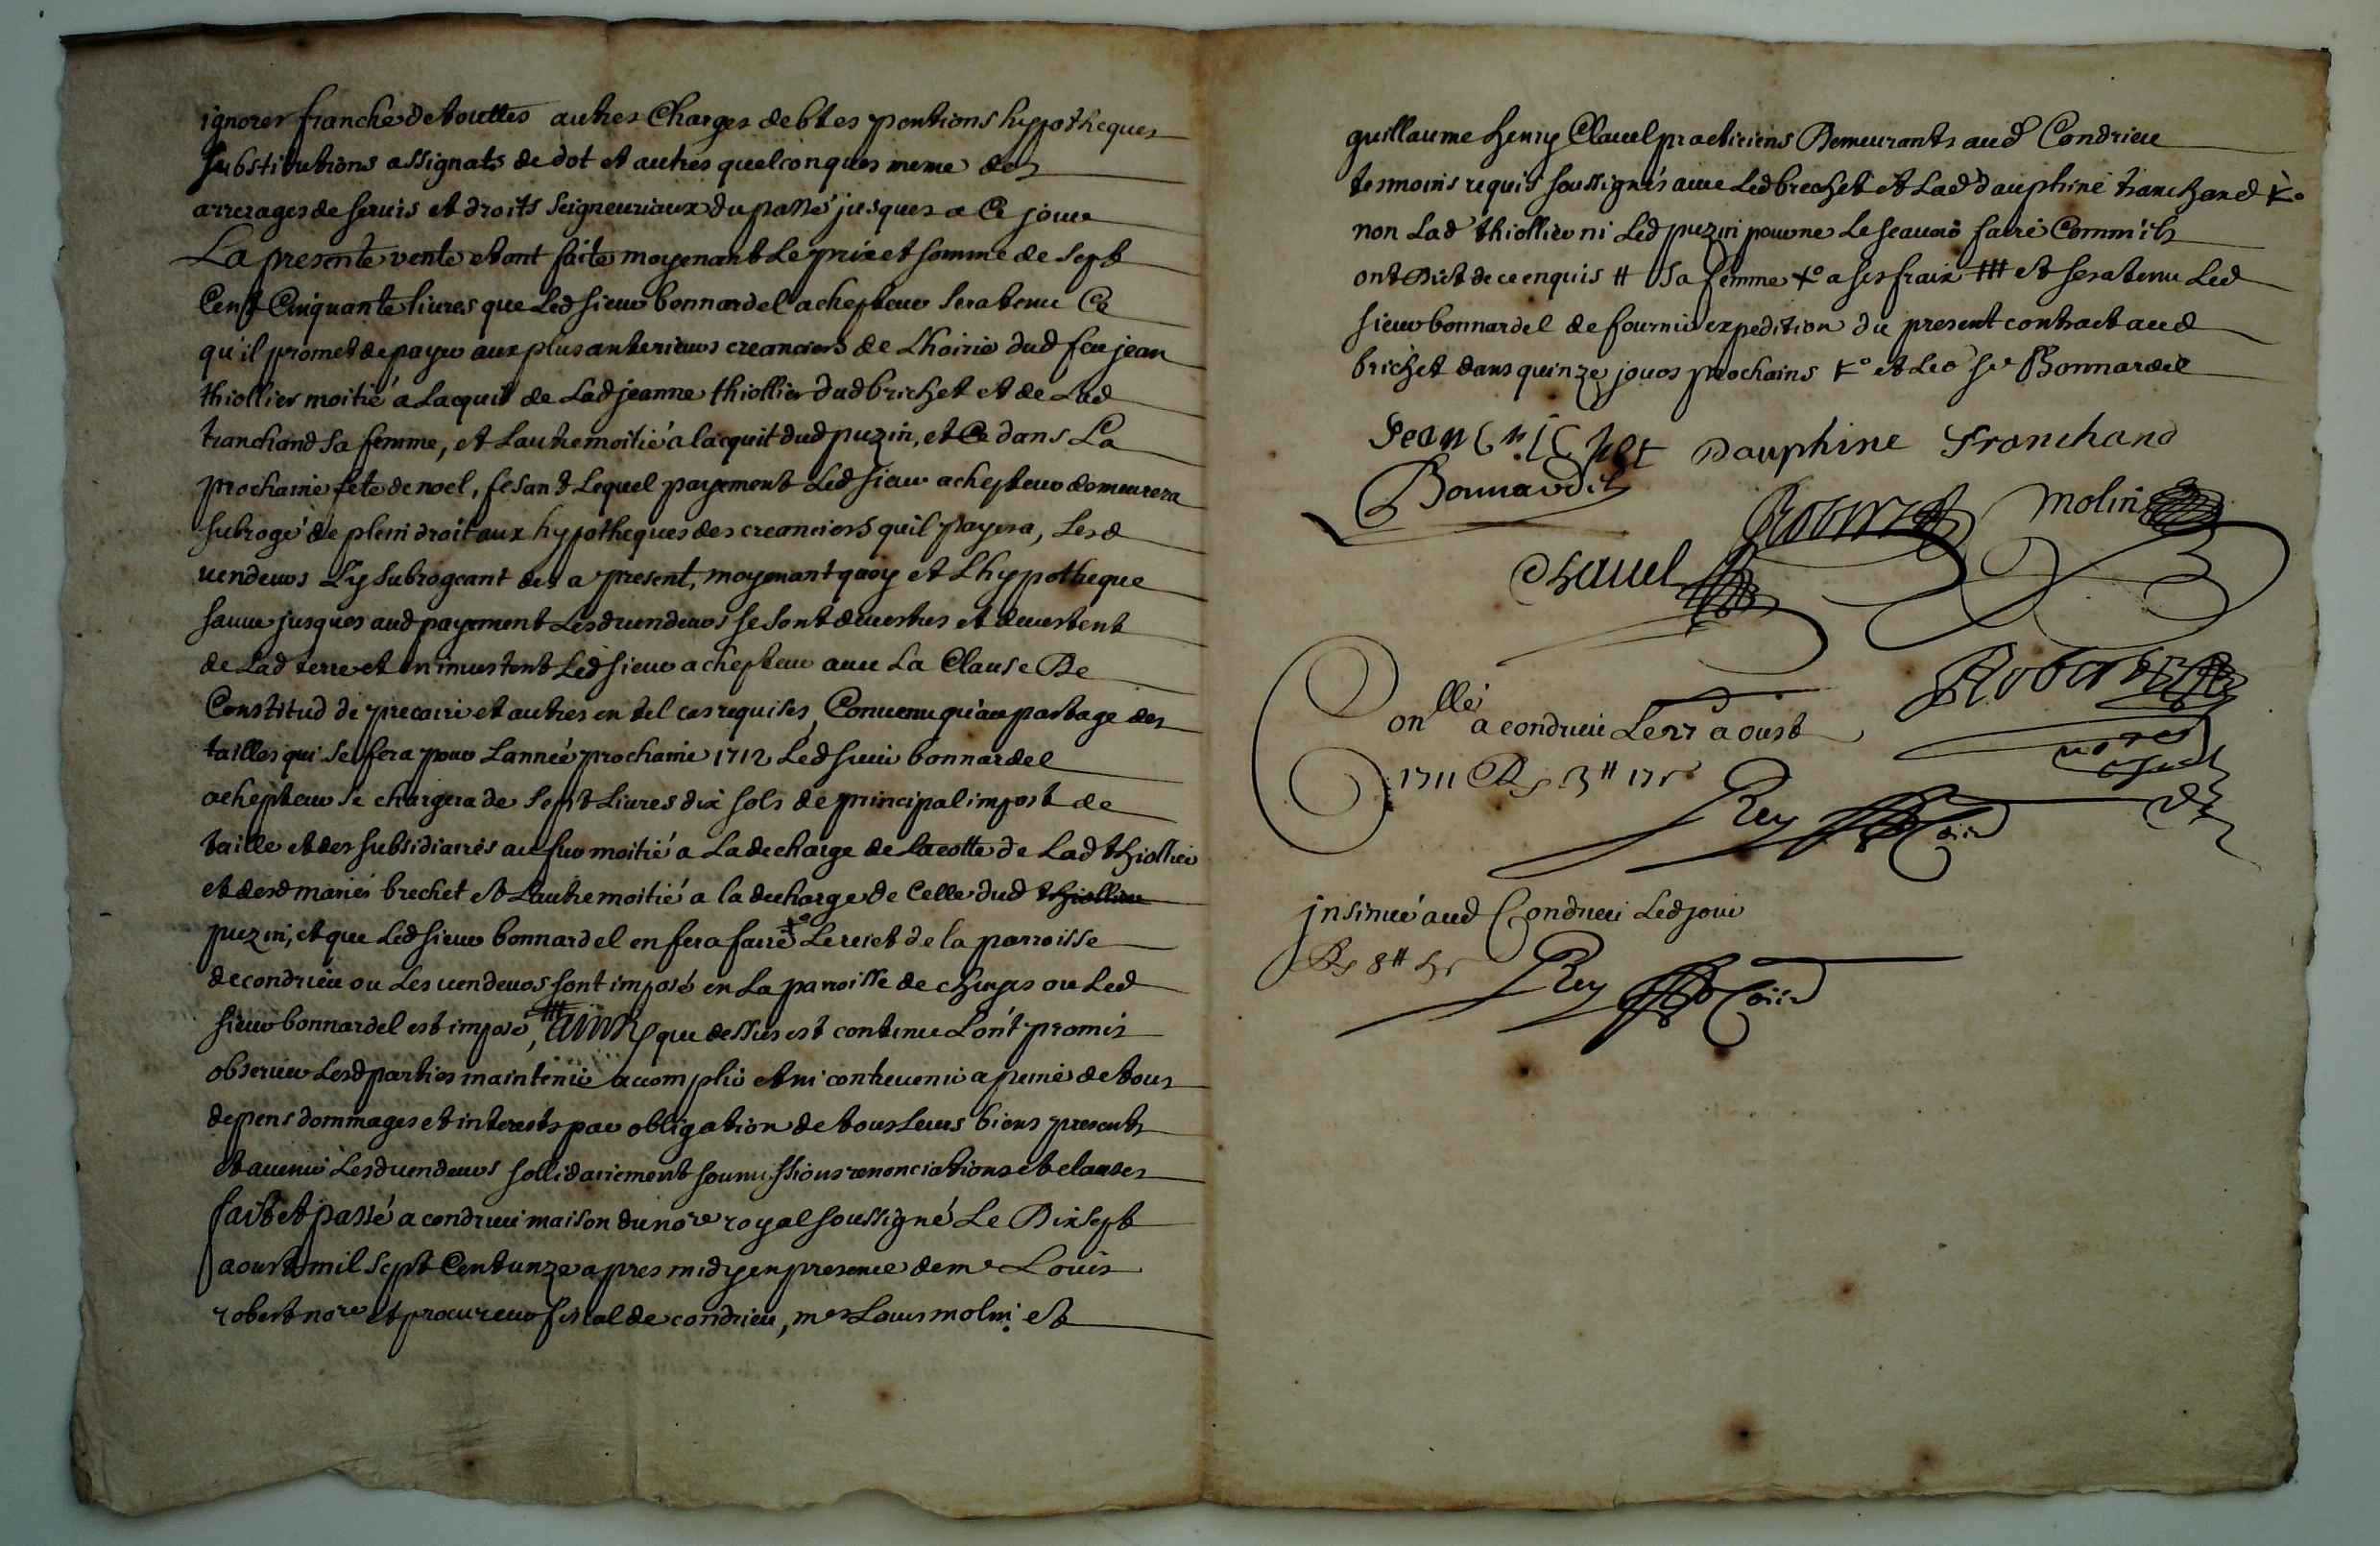 ignorer franche de touttes autres Charges debtes pentions hypotheques
substitutions assignats de dot et autres quelconques meme des
arrerages de servis et droits seigneuriaux du passé jusques a Ce jour
La presente vente etant faite moyenant Le prix et somme de sept
Cent Cinquante livres que Led sieur bonnardel achepteur sera tenu Ce
qu'il promet de payer aux plus anterieurs creanciers de L'hoirie dud feu jean
thiollier moitié a Lacquit de Lad jeanne thiollier dud brichet et de Lad
tranchand sa femme, et Lautre moitié a lacquit dud puzin, et Ce dans La
prochaine fete de noel, fesant Lequel payement Led sieur achepteur demeurera
subrogé de plein droit aux hypotheques des creanciers quil payera, Lesd
vendeurs L'y subrogeant des a present, moyenant quoy et L'hypotheque
sauve jusques aud payement Lesd vendeurs se sont devestus et devestent
de Lad terre et en investent Led sieur achepteur avec La Clause De
Constitud de precaire et autres en tel cas requises, Convenu qu'au partage des
tailles qui se fera pour Lannée prochaine 1712 Led sieur bonnardel
achepteur se chargera de sept Livres dix sols de principal impost de
taille et des subsidiaires au fur moitié a La decharge de La cotte de Lad thiollier
et desd mariés brechet et Lautre moitié a la decharge de Celle dud thiollier
puzin, et que Led sieur bonnardel en fera faire Le rejet de la parroisse
de condrieu ou Les vendeurs sont imposé en La parroisse de chuyes ou Led
sieur bonnardel est imposé, ainsy que dessus est contenu L'ont promis
observer Lesd parties maintenir acomplir et ni contrevenir a peine de tous
depens dommages et interests par obligation de tous Leurs biens presents
et avenir Lesd vendeurs sollidairement soumissions renonciations et clauses
fait et passé a condrieu maison du nore royal soussigné Le Dix sept
aoust mil sept Cent unze apres midy en presence de me Louis
robert nore et procureur fiscal de condrieu, mes Louis molin et
guillaume henry Clavel practiciens Demeurants aud Condrieu
tesmoins requis soussignés avec Led brechet et Lad dauphine tranchand
non Lad thiollier ni Led puzin pour ne Le scavoir faire Comm'ils
ont Dict de ce enquis # sa femme +o a ses fraix ### et sera tenu Led
sieur bonnardel de fournir expedition du present contract aud
brichet dans quinze jours prochains +o et Led sr Bonnardel
Jean brichet Dauphine Tranchand
Bonnardel
Robert molin
Chavel
Robert
onllé a condrieu Le 27 aoust
nore
1711
Rey
insinué aud Condrieu Led jour
Rey